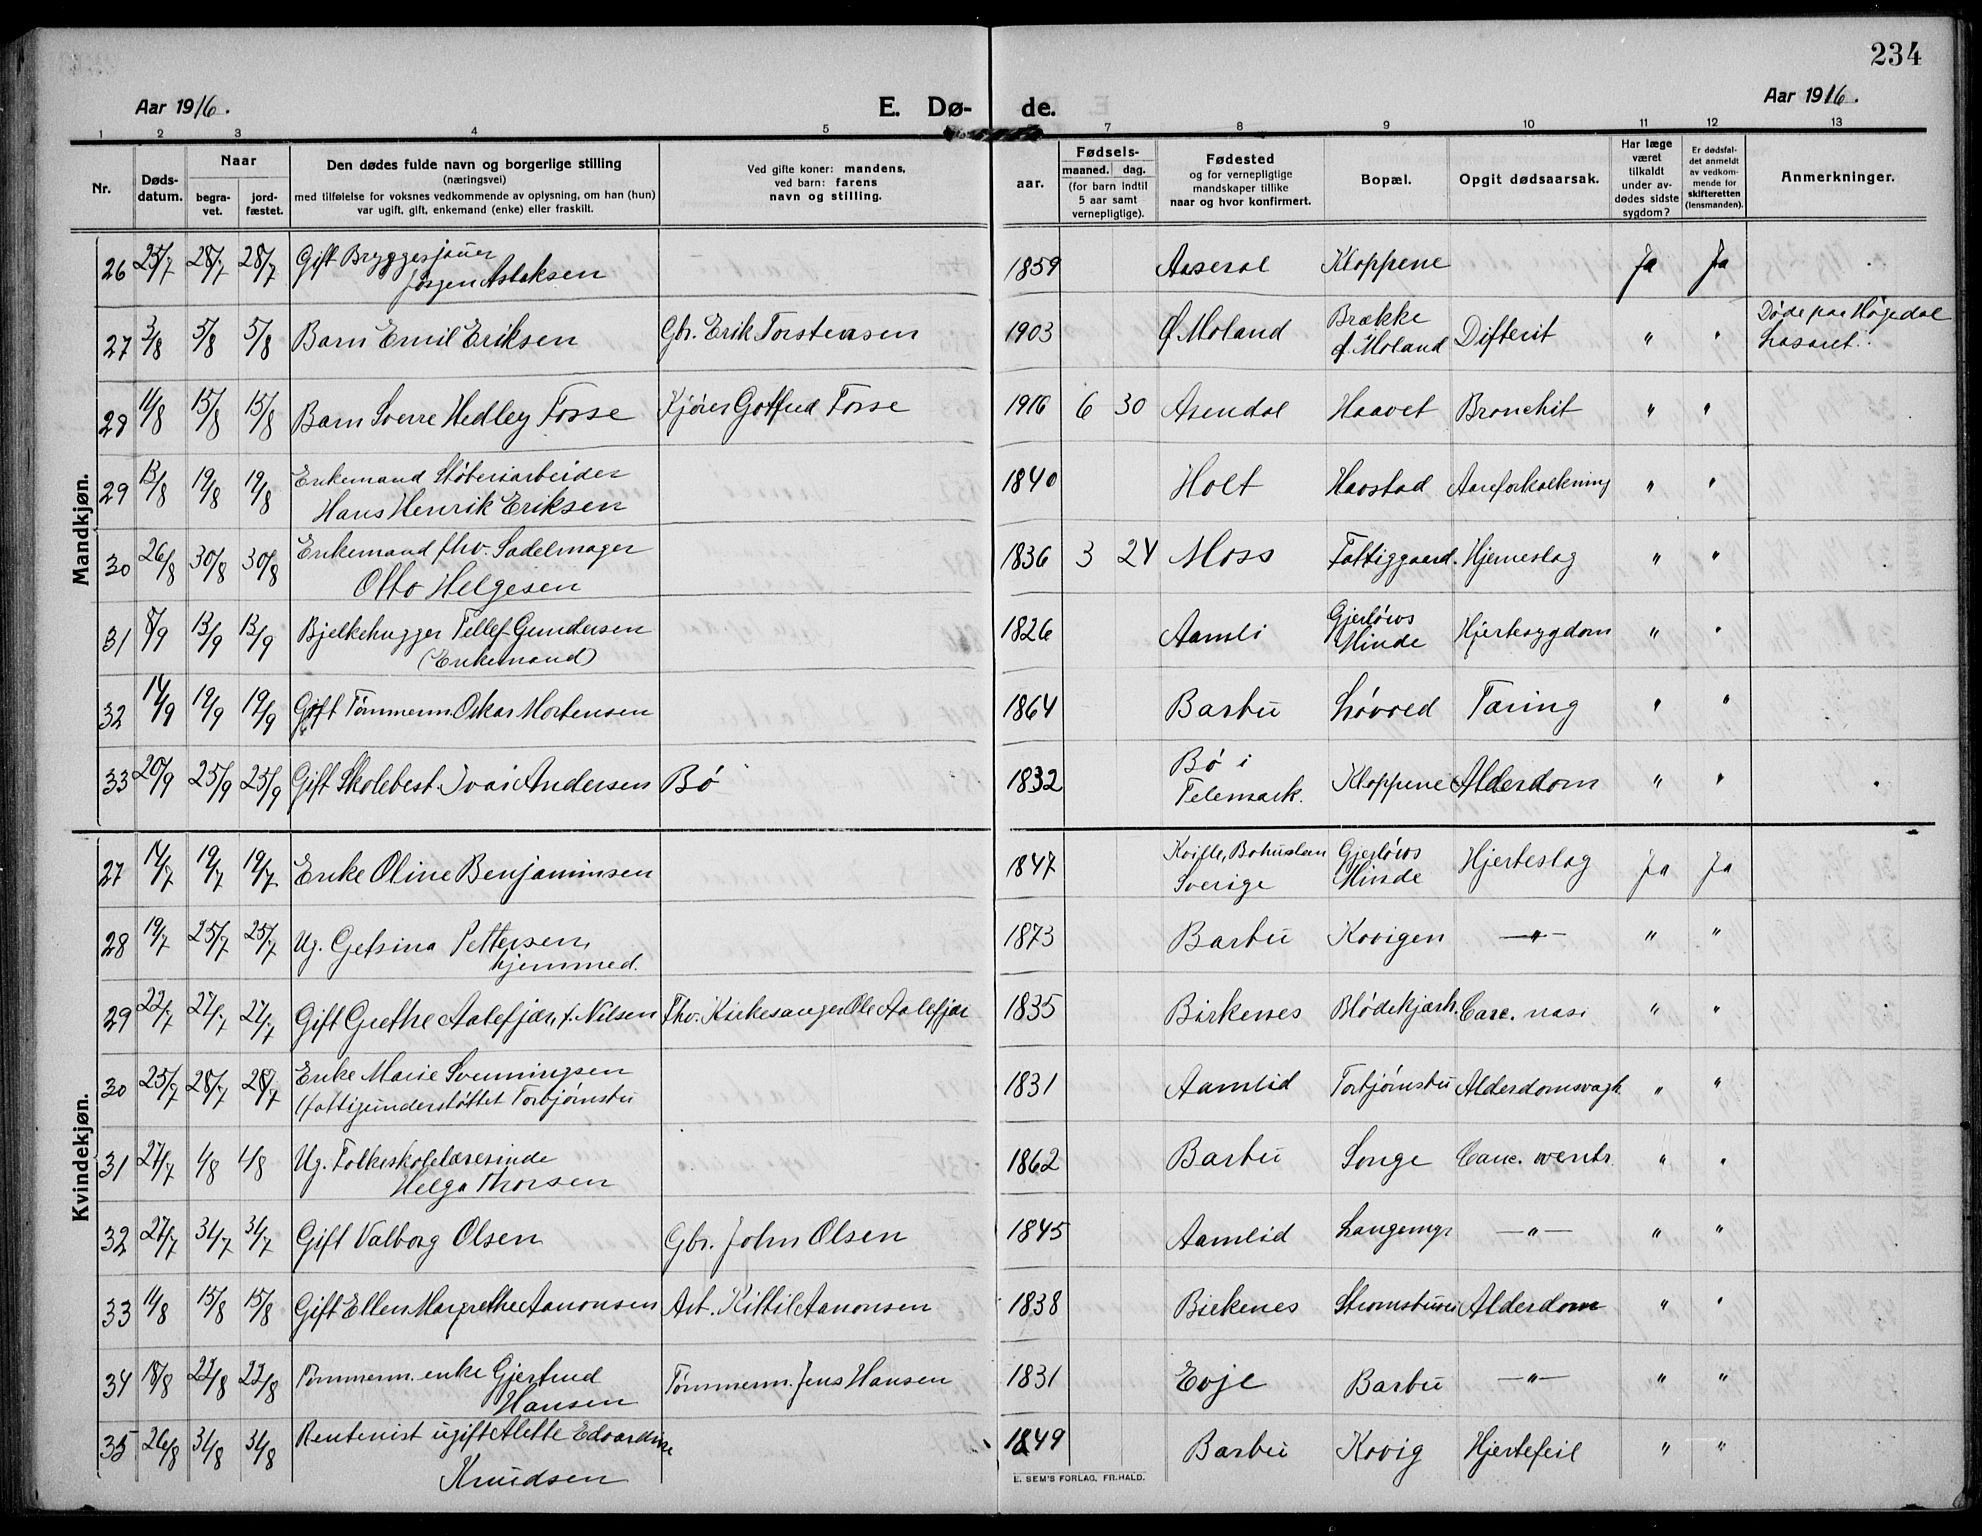 234
Aar 1916. E. Dø- de. Aar 1916.
1 2 3 4 5 7 8 9 10 11 12 13
Nr. Døds-datum. Naar begra-vet. jord-fæstet. Den dødes fulde navn og borgerlige stilling (næringsvei) med tilføielse for voksnes vedkommende av oplysning, om han (hun) var ugift, gift, enkemand (enke) eller fraskilt. Ved gifte koner: mandens, ved barn: farens navn og stilling. aar. Fødsels- maaned. dag. (for barn indtil 5 aar samt vernepligtige). Fødested og for vernepligtige mandskaper tillike naar og hvor konfirmert. Bopæl. Opgit dødsaarsak. Har læge været tilkaldt under av-dødes sidste sygdom? Er dødsfal-det anmeldt av vedkom-mende for skifteretten (lensmanden). Anmerkninger.
Mandkjøn.
26 25/7 28/7 28/7 Gift Bryggersjauer Jørgen Aslaksen 1859 Aaseral Kloppene Ja Ja
27 3/8 5/8 5/8 Barn Emil Eriksen Gbr. Erik Torstensen 1903 Ø. Moland Brække Ø. Moland Difterit " " Døde paa Høgedal Lasaret.
28 11/8 15/8 15/8 Barn Sverre Hedley Fosse Kjører Gotfred Fosse 1916 6 30 Arendal Haavet Bronchit " "
29 13/8 19/8 19/8 Enkemand Støberiarbeider Hans Henrik Eriksen 1840 Holt Harstad Aareforkalkning " "
30 26/8 30/8 30/8 Enkemand fhv. Sadelmager Otto Helgesen 1836 3 24 Moss Fattiggaard. Hjerneslag " "
31 8/9 13/9 13/9 Bjelkehugger Tellef Gundersen (Enkemand) 1826 Aamli Gjerløws Minde Hjertesygdom " "
32 14/9 19/9 19/9 Gift Tømmerm. Oskar Mortensen 1864 Barbu Løvold Tæring " "
33 20/9 25/9 25/9 Gift Skolebest. Ivar Andersen Bø 1832 Bø i Telemark. Kloppene Alderdom " "
Kvindekjøn.
27 14/7 19/7 19/7 Enke Oline Benjaminsen 1847 Kville, Bohuslen Sverige Gjerløws Minde Hjerteslag Ja Ja
28 19/7 25/7 25/7 Ug. Getsina Pettersen, hjemmed. 1873 Barbu Kovigen —"— " "
29 22/7 27/7 27/7 Gift Grethe Aalefjær, f. Nilsen Fhv. Kirkesanger Ole Aalefjær 1835 Birkenes Blødekjærh. Canc. nasi " "
30 25/7 28/7 28/7 Enke Marie Svenningsen (fattigunderstøttet Torbjørnsbu 1831 Aamlid Torbjørnsbu Alderdomsvagh. " "
31 27/7 4/8 4/8 Ug. Folkeskolelærerinde Helga Thorsen 1862 Barbu Songe Canc. ventr. " "
32 27/7 31/7 31/7 Gift Valborg Olsen Gbr. John Olsen 1845 Aamlid Langemyr —"— " "
33 11/8 15/8 15/8 Gift Ellen Margrethe Aanonsen Arb. Kittil Aanonsen 1838 Birkenes Strømsbuvei Alderdom " "
34 18/8 22/8 22/8 Tømmerm. enke Gjertrud Hansen Tømmerm. Jens Hansen 1831 Evje Barbu —"— " "
35 26/8 31/8 31/8 Rentenist ugift Alette Edvardine Knudsen 1849 Barbu Kovig Hjertefeil " "
E. SEM'S FORLAG. FR.HALD.